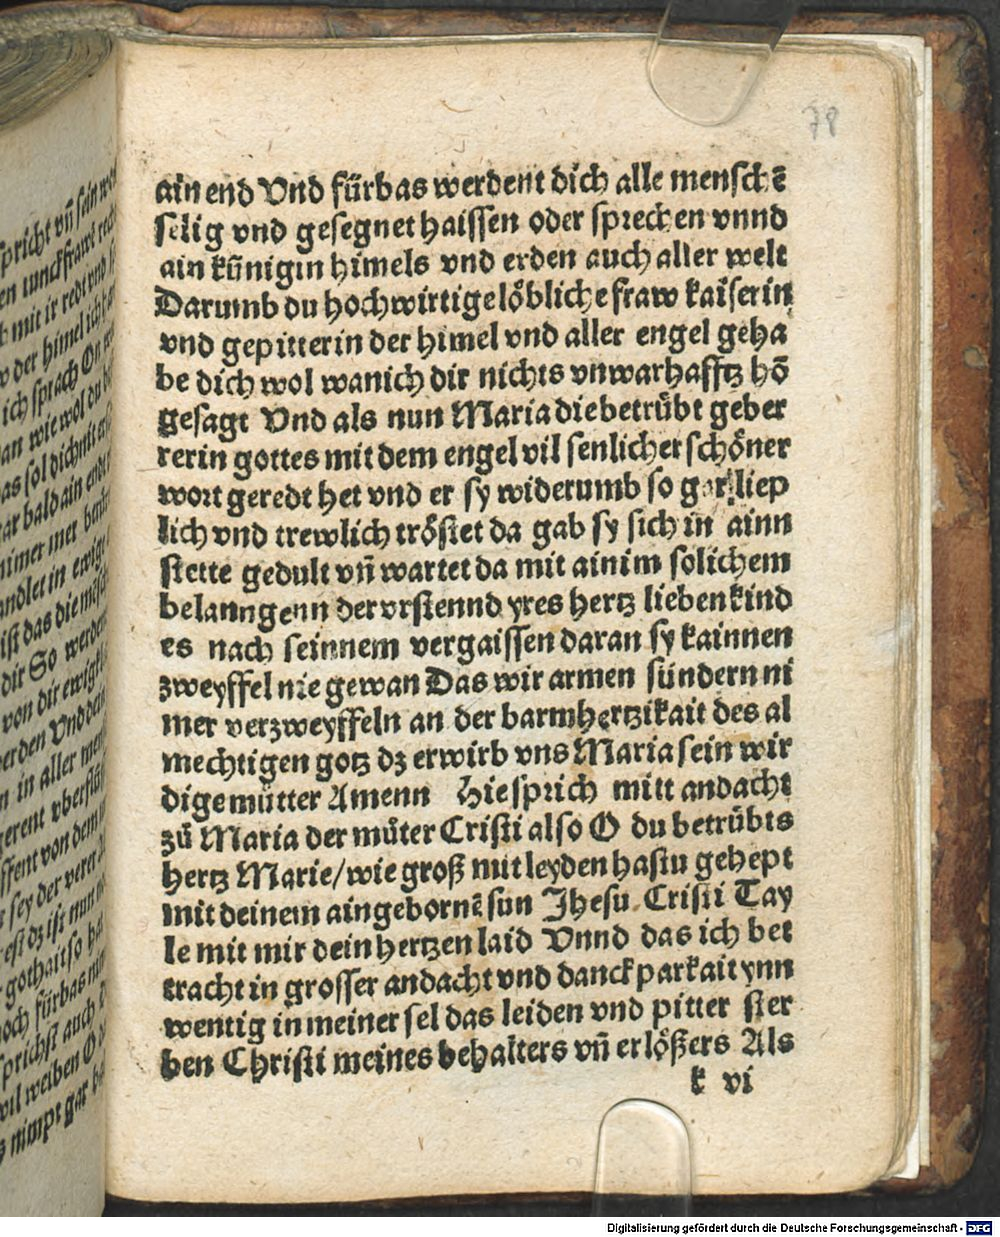 78
ain end Vnd fürbas werdent dich alle menschē
selig vnd gesegnet haissen oder sprechen vnnd
ain künigin himels vnd erden auch aller welt
Darumb du hochwirtige löbliche fraw kaiserin
vnd gepitterin der himel vnd aller engel geha
be dich wol wan ich dir nichts vnwarhafftz hō
gesagt Vnd als nun Maria die betrübt geber
rerin gottes mit dem engel vil senlicher schöner
wort geredt het vnd er sy widerumb so gar liep
lich vnd trewlich tröstet da gab sy sich in ainn
stette gedult vn̄ wartet da mit ainim solichem
belanngenn der vrstennd yres hertz lieben kind
es nach seinnem vergaissen daran sy kainnen
zweyffel nie gewan Das wir armen sündern ni
mer verzweyffeln an der barmhertzikait des al
mechtigen gotz dz erwirb vns Maria sein wir
dige mütter Amenn Hie sprich mitt andacht
zů Maria der můter Cristi also O du betrübts
hertz Marie/wie groß mitleyden hastu gehept
mit deinem aingebornē sun Jhesu Cristi Tay
le mit mir dein hertzen laid Vnnd das ich bet
tracht in grosser andacht vnd danckparkait ynn
wentig in meiner sel das leiden vnd pitter ster
ben Christi meines behalters vn̄ erlößers Als
k vi
Digitalisierung gefördert durch die Deutsche Forschungsgemeinschaft - DFG